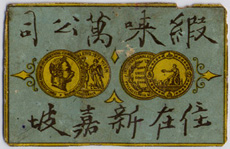 緞味萬公司
住在新嘉坡